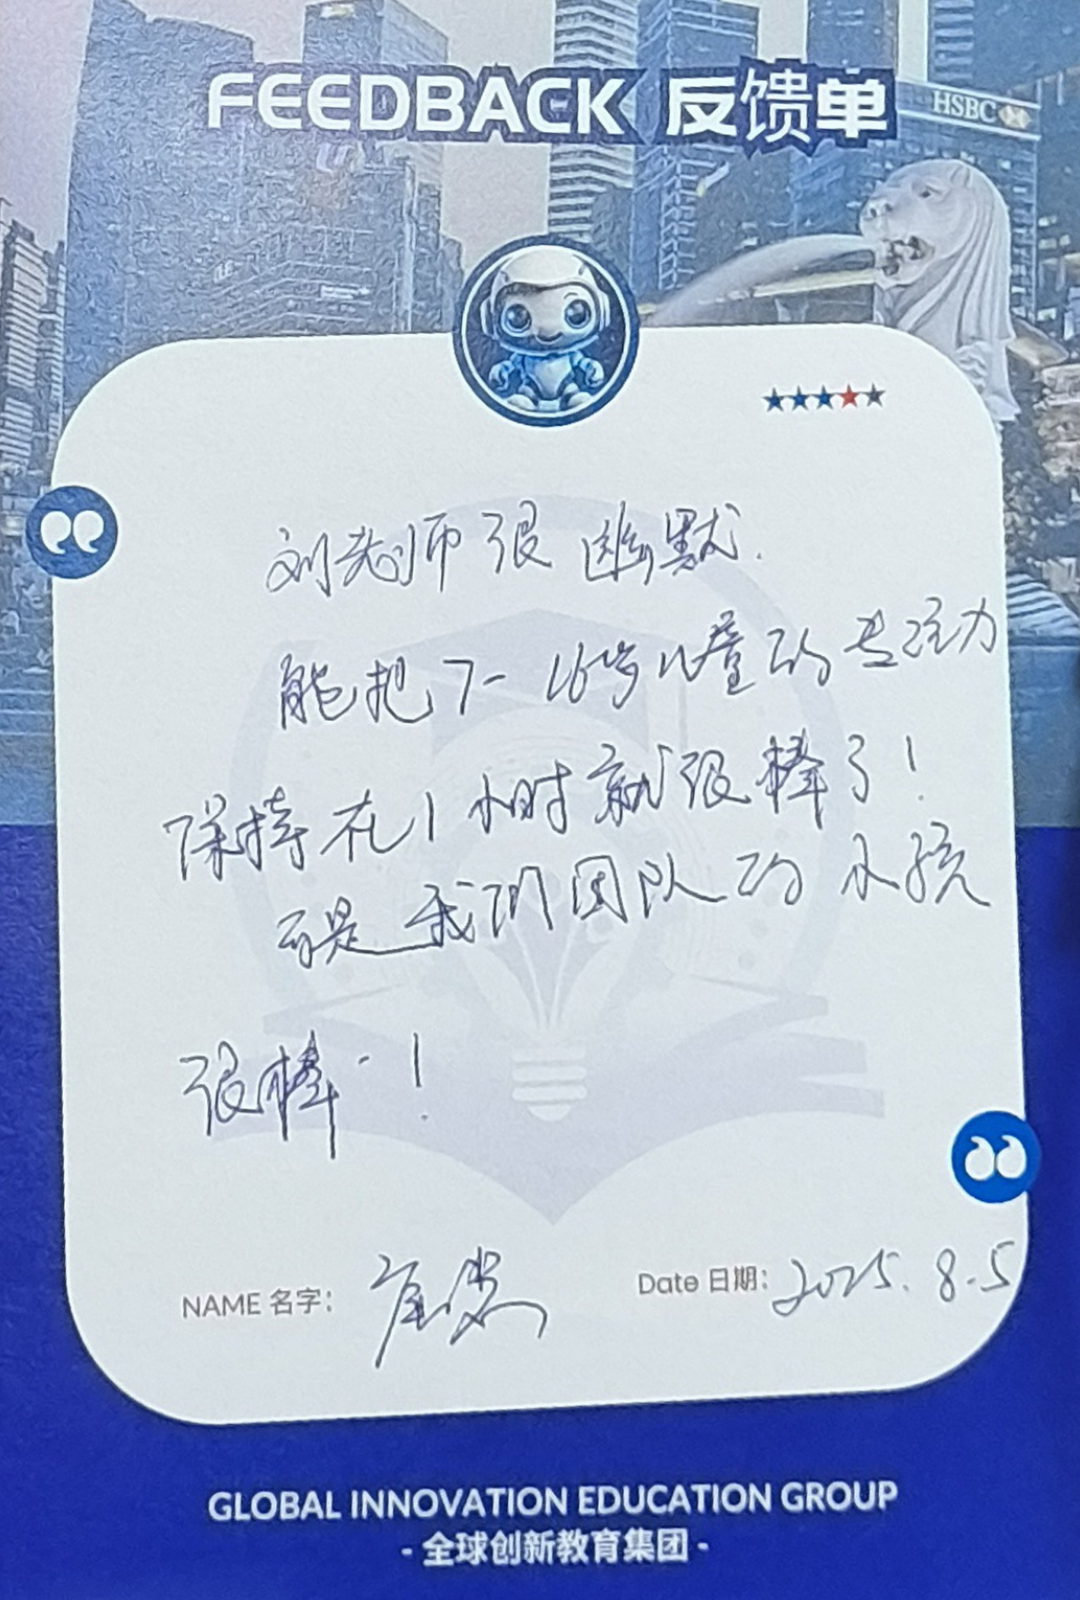 FEEDBACK 反馈单
HSBC
刘老师很幽默.
能把7-16岁儿童的专注力
保持在1小时就很棒了!
可是我们团队的小孩
很棒!
NAME 名字: 崔
Date 日期: 2025.8.5
GLOBAL INNOVATION EDUCATION GROUP
- 全球创新教育集团 -